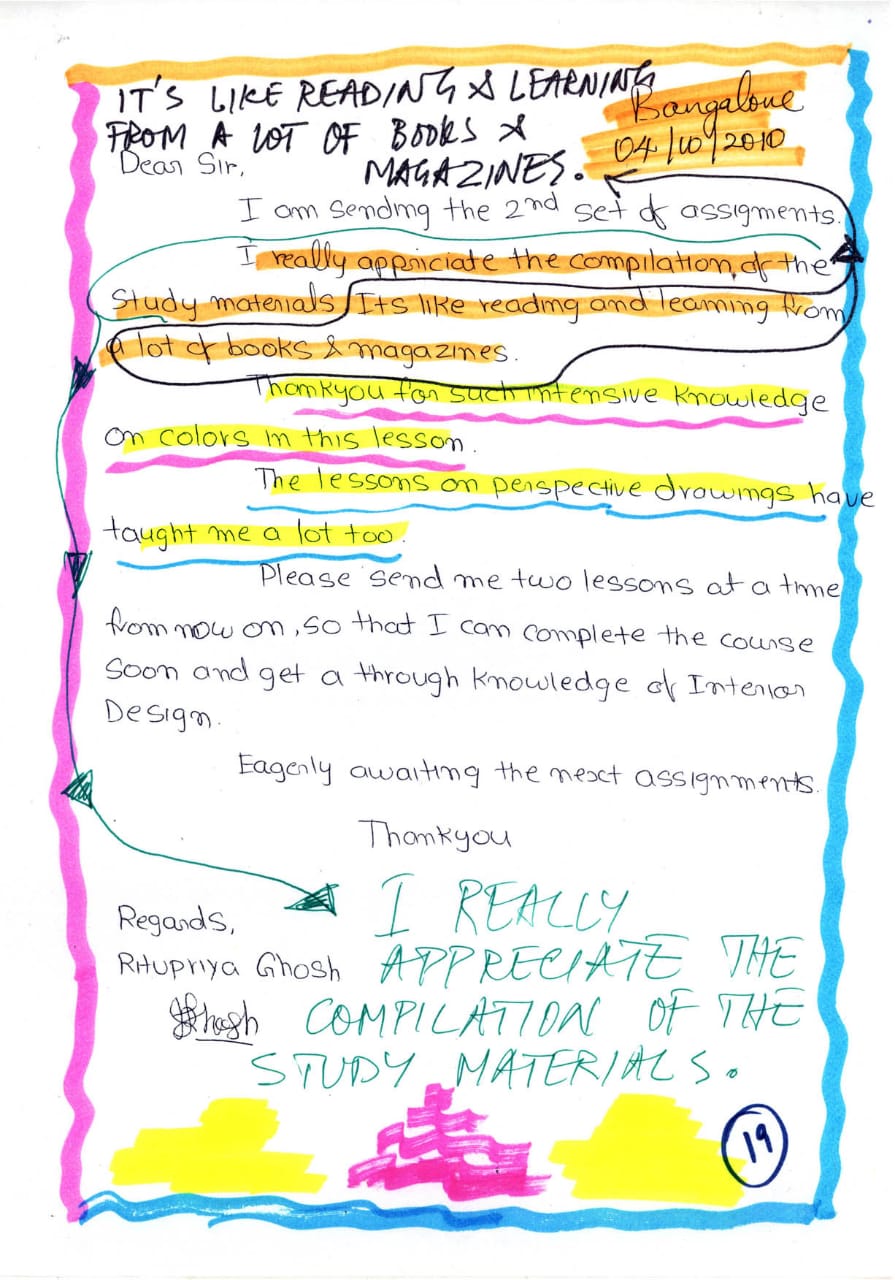 IT'S LIKE READING & LEARNING
FROM A LOT OF BOOKS &
MAGAZINES.
Bangalore
04/10/2010
Dear Sir,
I am sending the 2nd set of assigments.
I really appriciate the compilation of the
Study materials Its like reading and learning from
a lot of books & magazines.
Thankyou for such intensive knowledge
on colors in this lesson.
The lessons on perspective drawings have
taught me a lot too.
Please send me two lessons at a time
from now on, so that I can complete the course
soon and get a through knowledge of Interior
Design.
Eagerly awaiting the next assignments.
Thankyou
Regards,
Ritupriya Ghosh
Ghosh
I REALLY
APPRECIATE THE
COMPILATION OF THE
STUDY MATERIALS.
19